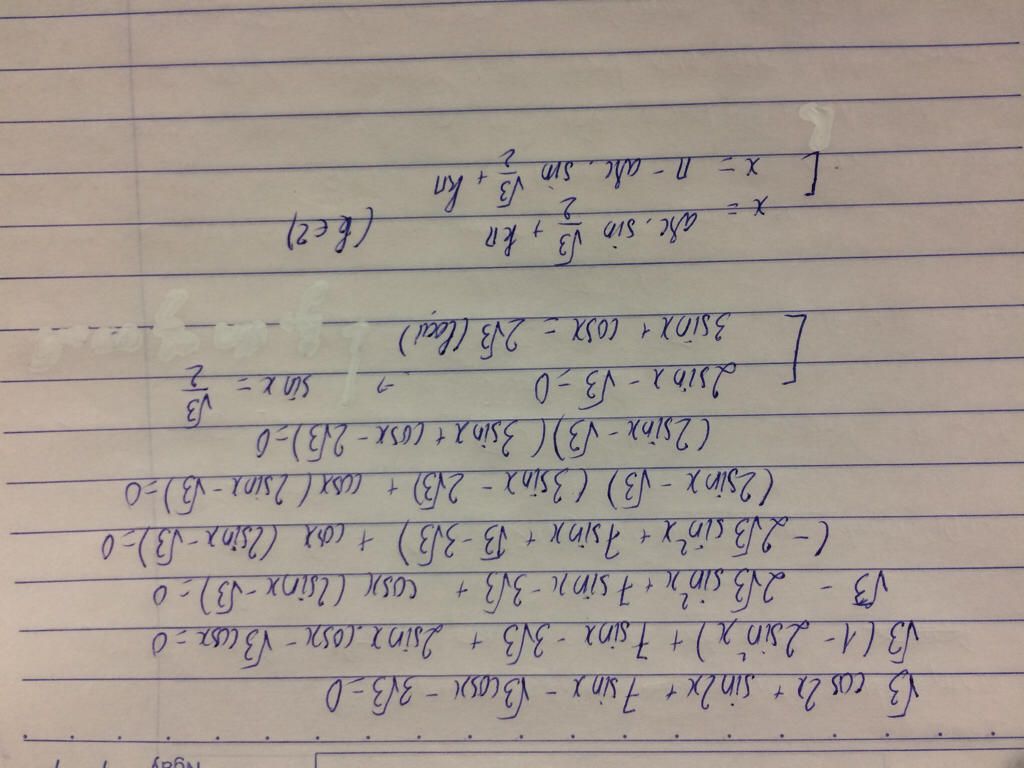 Ngày
√3 cos2x + sin2x + 7sinx - √3cosx - 3√3 = 0
√3(1 - 2sin²x) + 7sinx - 3√3 + 2sinx.cosx - √3cosx = 0
√3 - 2√3sin²x + 7sinx - 3√3 + cosx(2sinx - √3) = 0
(-2√3sin²x + 7sinx + √3 - 3√3) + cosx(2sinx - √3) = 0
(2sinx - √3)(3sinx - 2√3) + cosx(2sinx - √3) = 0
(2sinx - √3)(3sinx + cosx - 2√3) = 0
[ 2sinx - √3 = 0 → sinx = √3/2
3sinx + cosx = 2√3 (loại)
[ x = arc.sin √3/2 + kπ (k ∈ Z)
x = π - arc.sin √3/2 + kπ